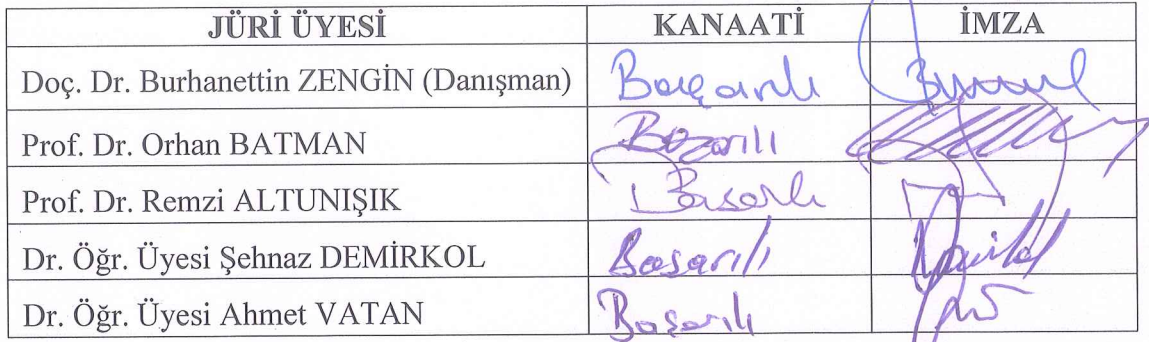 JÜRİ ÜYESİ KANAATİ İMZA
Doç. Dr. Burhanettin ZENGİN (Danışman) Başarılı
Prof. Dr. Orhan BATMAN Başarılı
Prof. Dr. Remzi ALTUNIŞIK Başarılı
Dr. Öğr. Üyesi Şehnaz DEMİRKOL Başarılı
Dr. Öğr. Üyesi Ahmet VATAN Başarılı